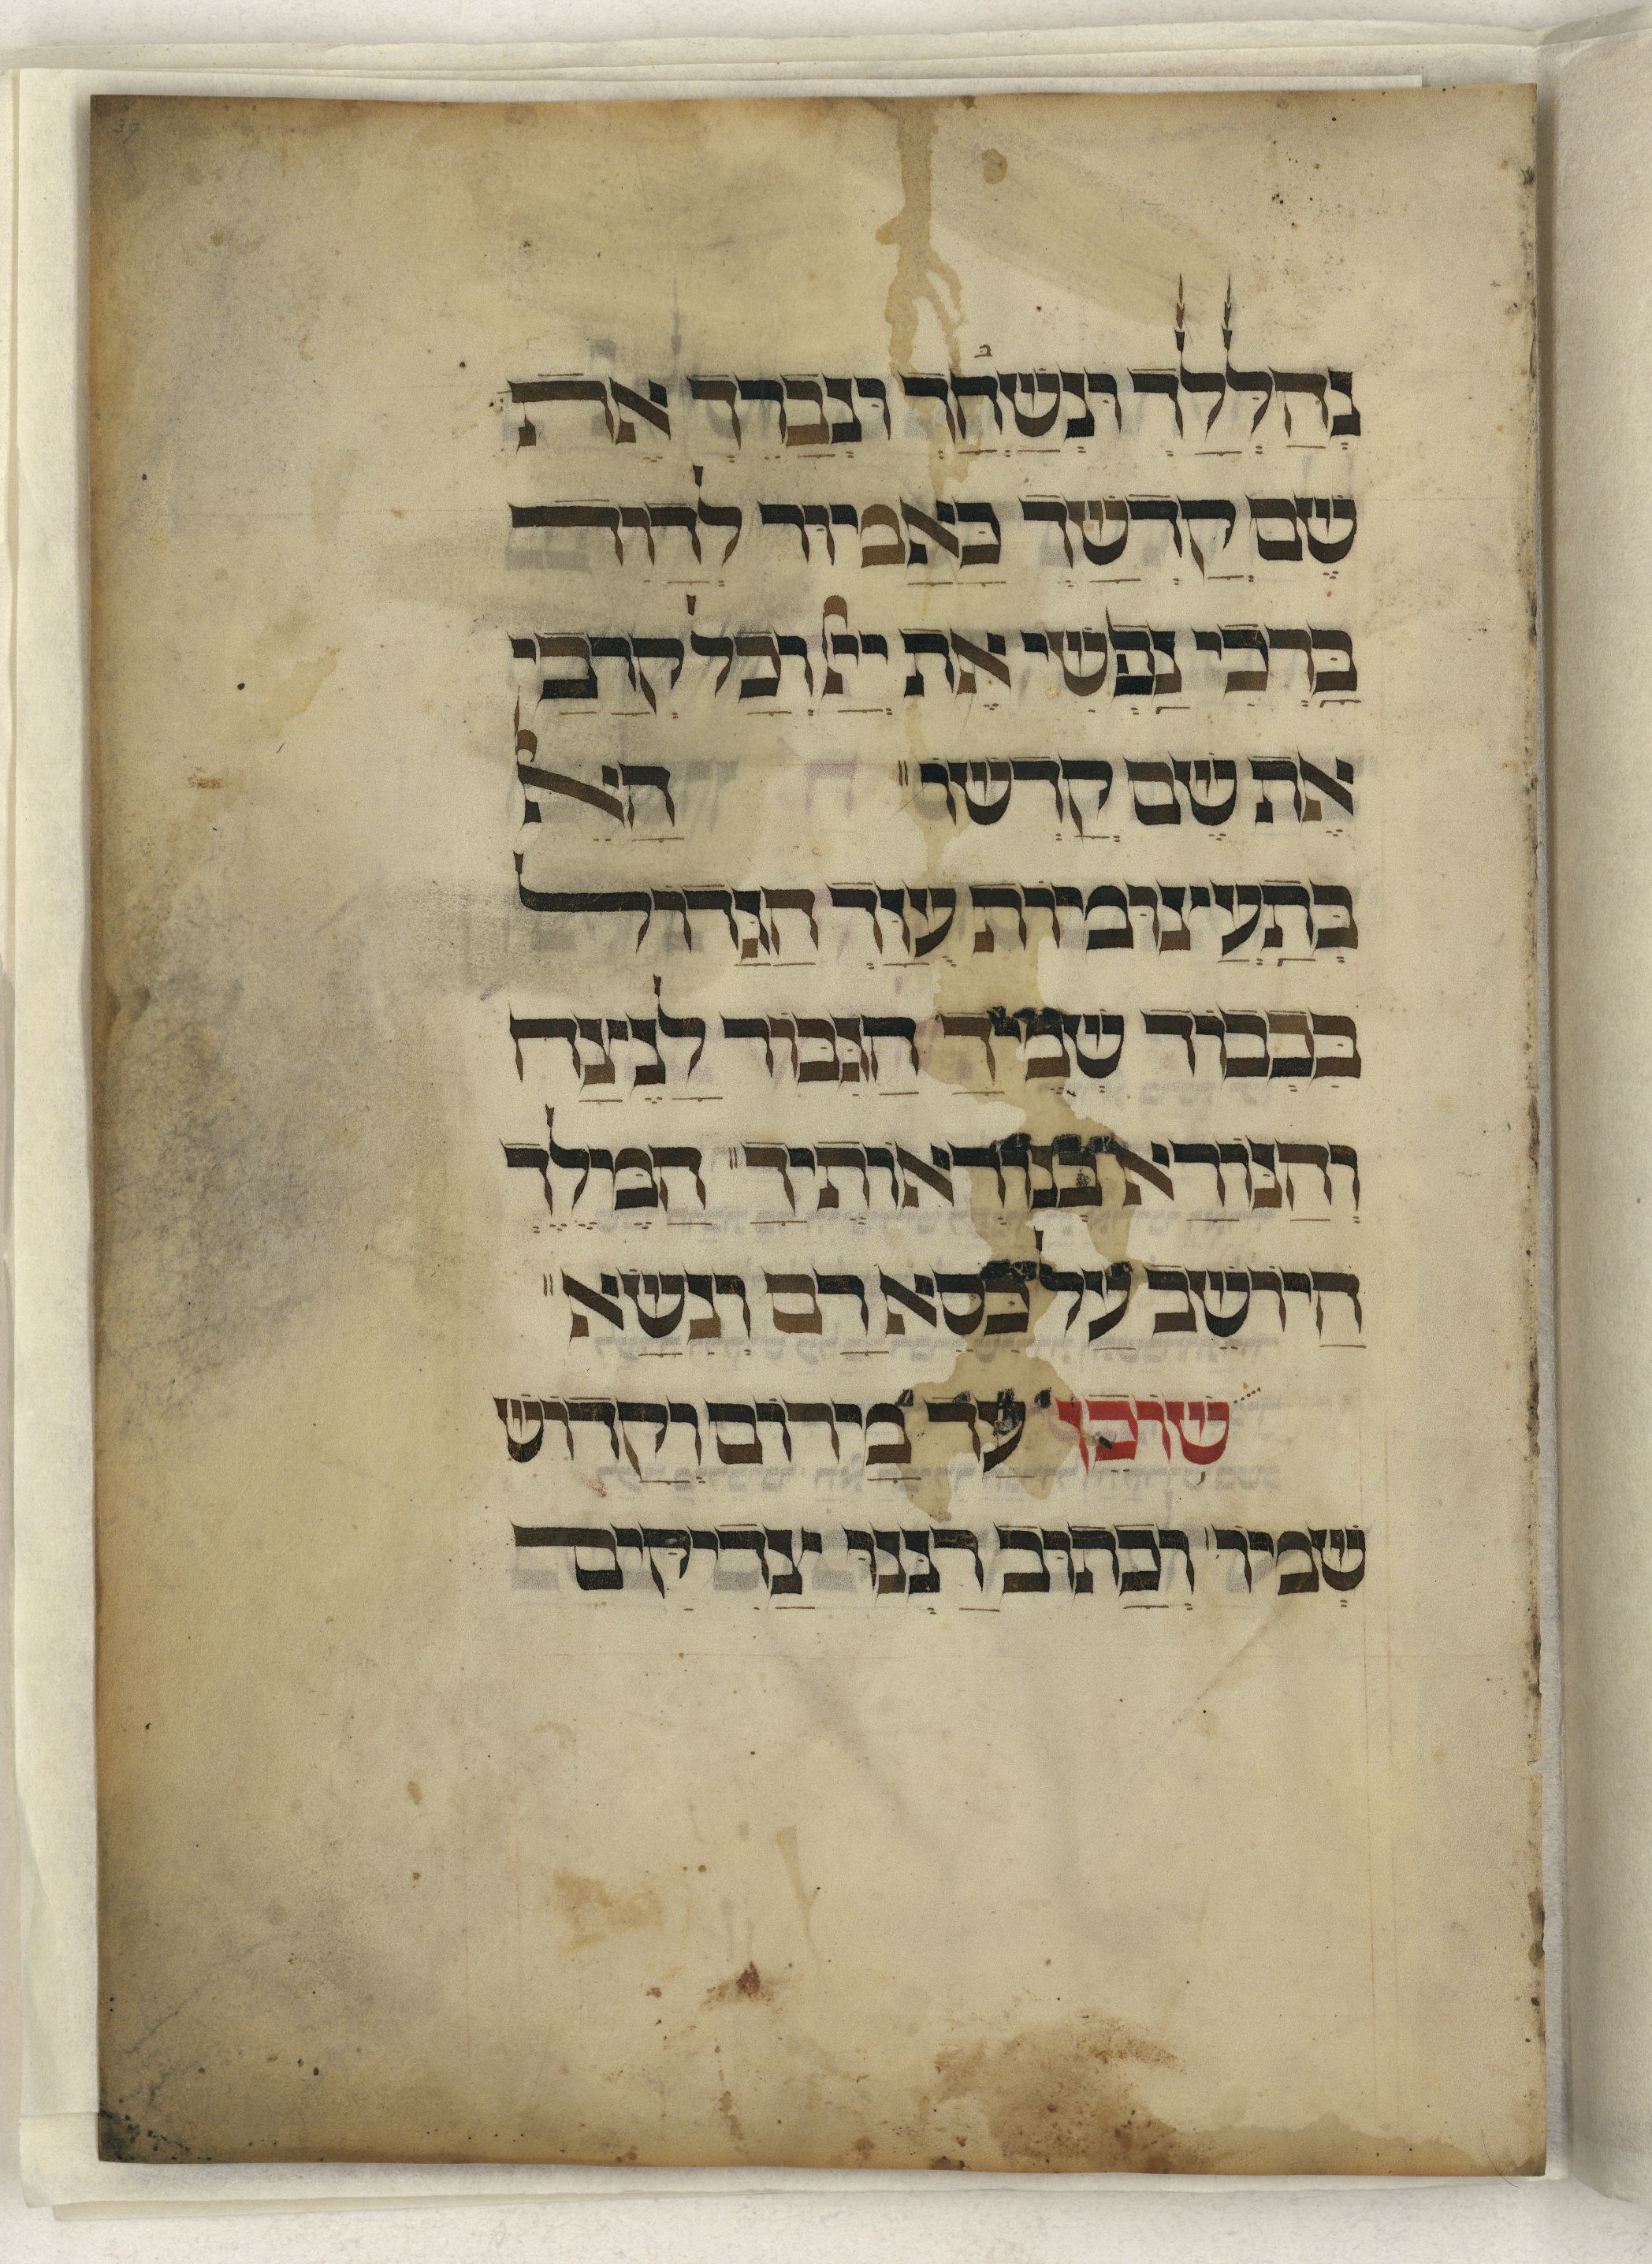 נהללך ונשחך ונברך את
שם קדשך כאמור לדוד
ברכי נפשי את ייי וכל קרבי
את שם קדשו״ האל
בתעצומות עזך הגדול
בכבוד שמך הגבור לנצח
והנורא בנוראותיך״ המלך
היושב על כסא רם ונשא״
שוכן עד מרום וקדוש
שמו׳ וכתוב רננו צדיקים